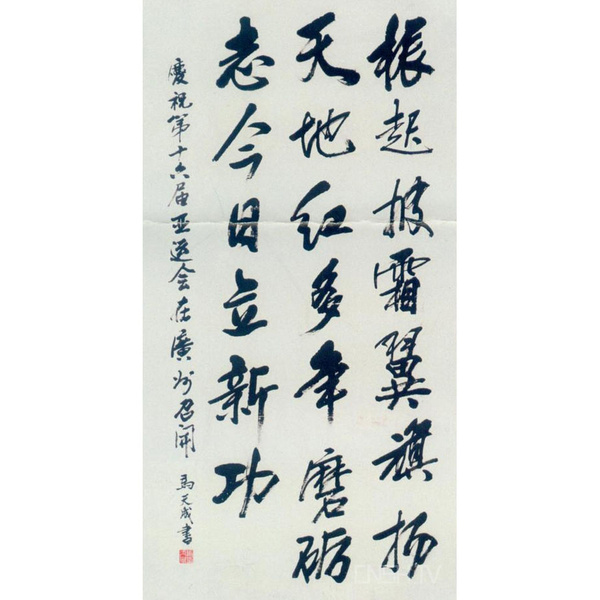 振起披霜翼旗扬
天地红多年磨砺
志今日立新功
慶祝第十六届亚运会在廣州召開
馬天成書